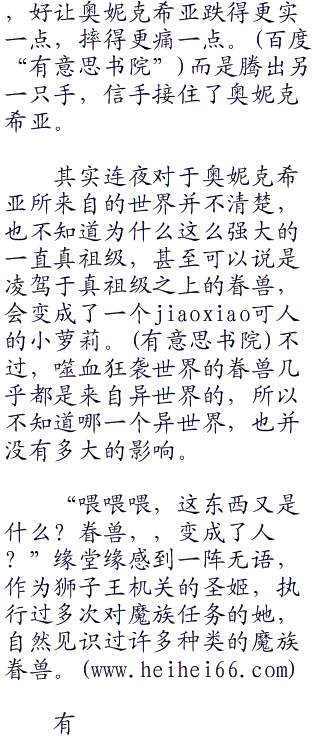 ，好让奥妮克希亚跌得更实
一点，摔得更痛一点。(百度
“有意思书院”)而是腾出另
一只手，信手接住了奥妮克
希亚。
其实连夜对于奥妮克希
亚所来自的世界并不清楚，
也不知道为什么这么强大的
一直真祖级，甚至可以说是
凌驾于真祖级之上的眷兽，
会变成了一个jiaoxiao可人
的小萝莉。(有意思书院)不
过，噬血狂袭世界的眷兽几
乎都是来自异世界的，所以
不知道哪一个异世界，也并
没有多大的影响。
“喂喂喂，这东西又是
什么？眷兽，，变成了人
？”缘堂缘感到一阵无语，
作为狮子王机关的圣姬，执
行过多次对魔族任务的她，
自然见识过许多种类的魔族
眷兽。(www.heihei66.com)
有